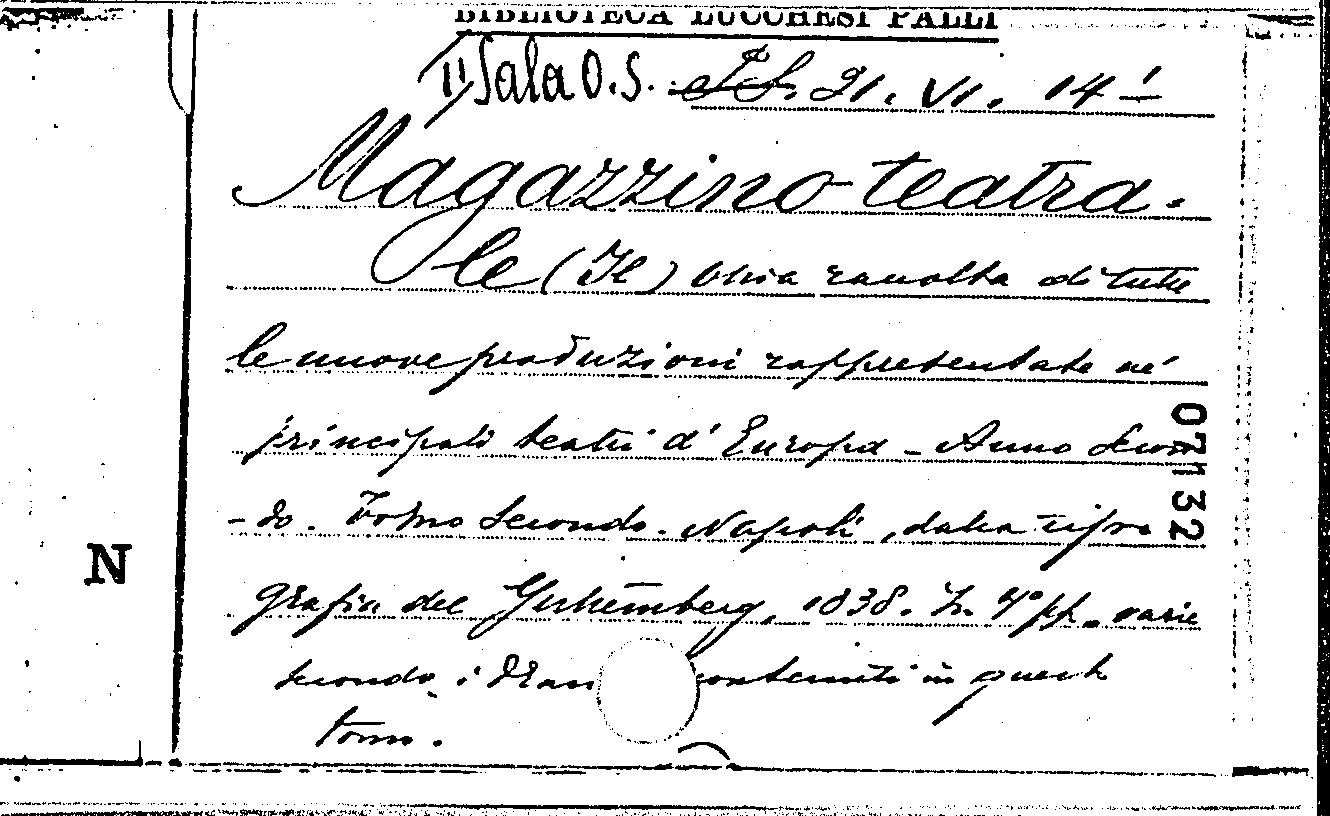 BIBLIOTECA LUCCHESI PALLI
II Sala O.S. 21. VI. 14¹
Magazzino teatra-
le (Il) Ossia raccolta di tutte
le nuove produzioni rappresentate ne'
principali teatri d'Europa - Anno Secon
-do. Tomo Secondo. Napoli, dalla tipo
grafia del Guttemberg, 1838. In 4° pp. varie
secondo i dram contenuti in questo
tomo.
N
07132